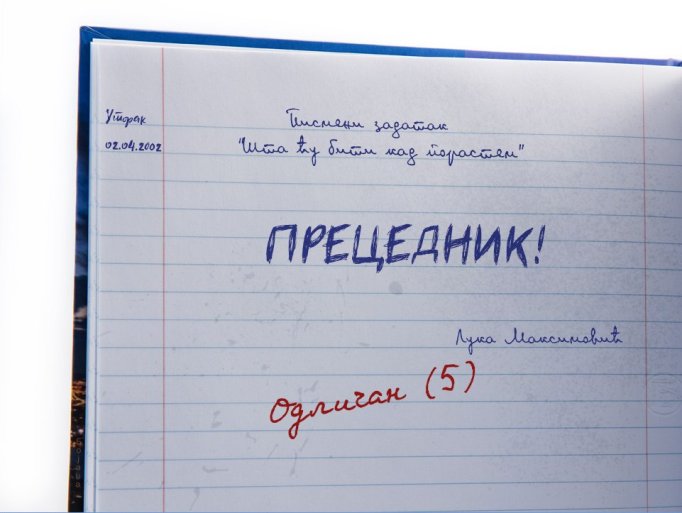 Уторак
02.04.2002
Писмени задатак
"Шта ћу бити кад порастем"
ПРЕЦЕДНИК!
Лука Максимовић
Одличан (5)